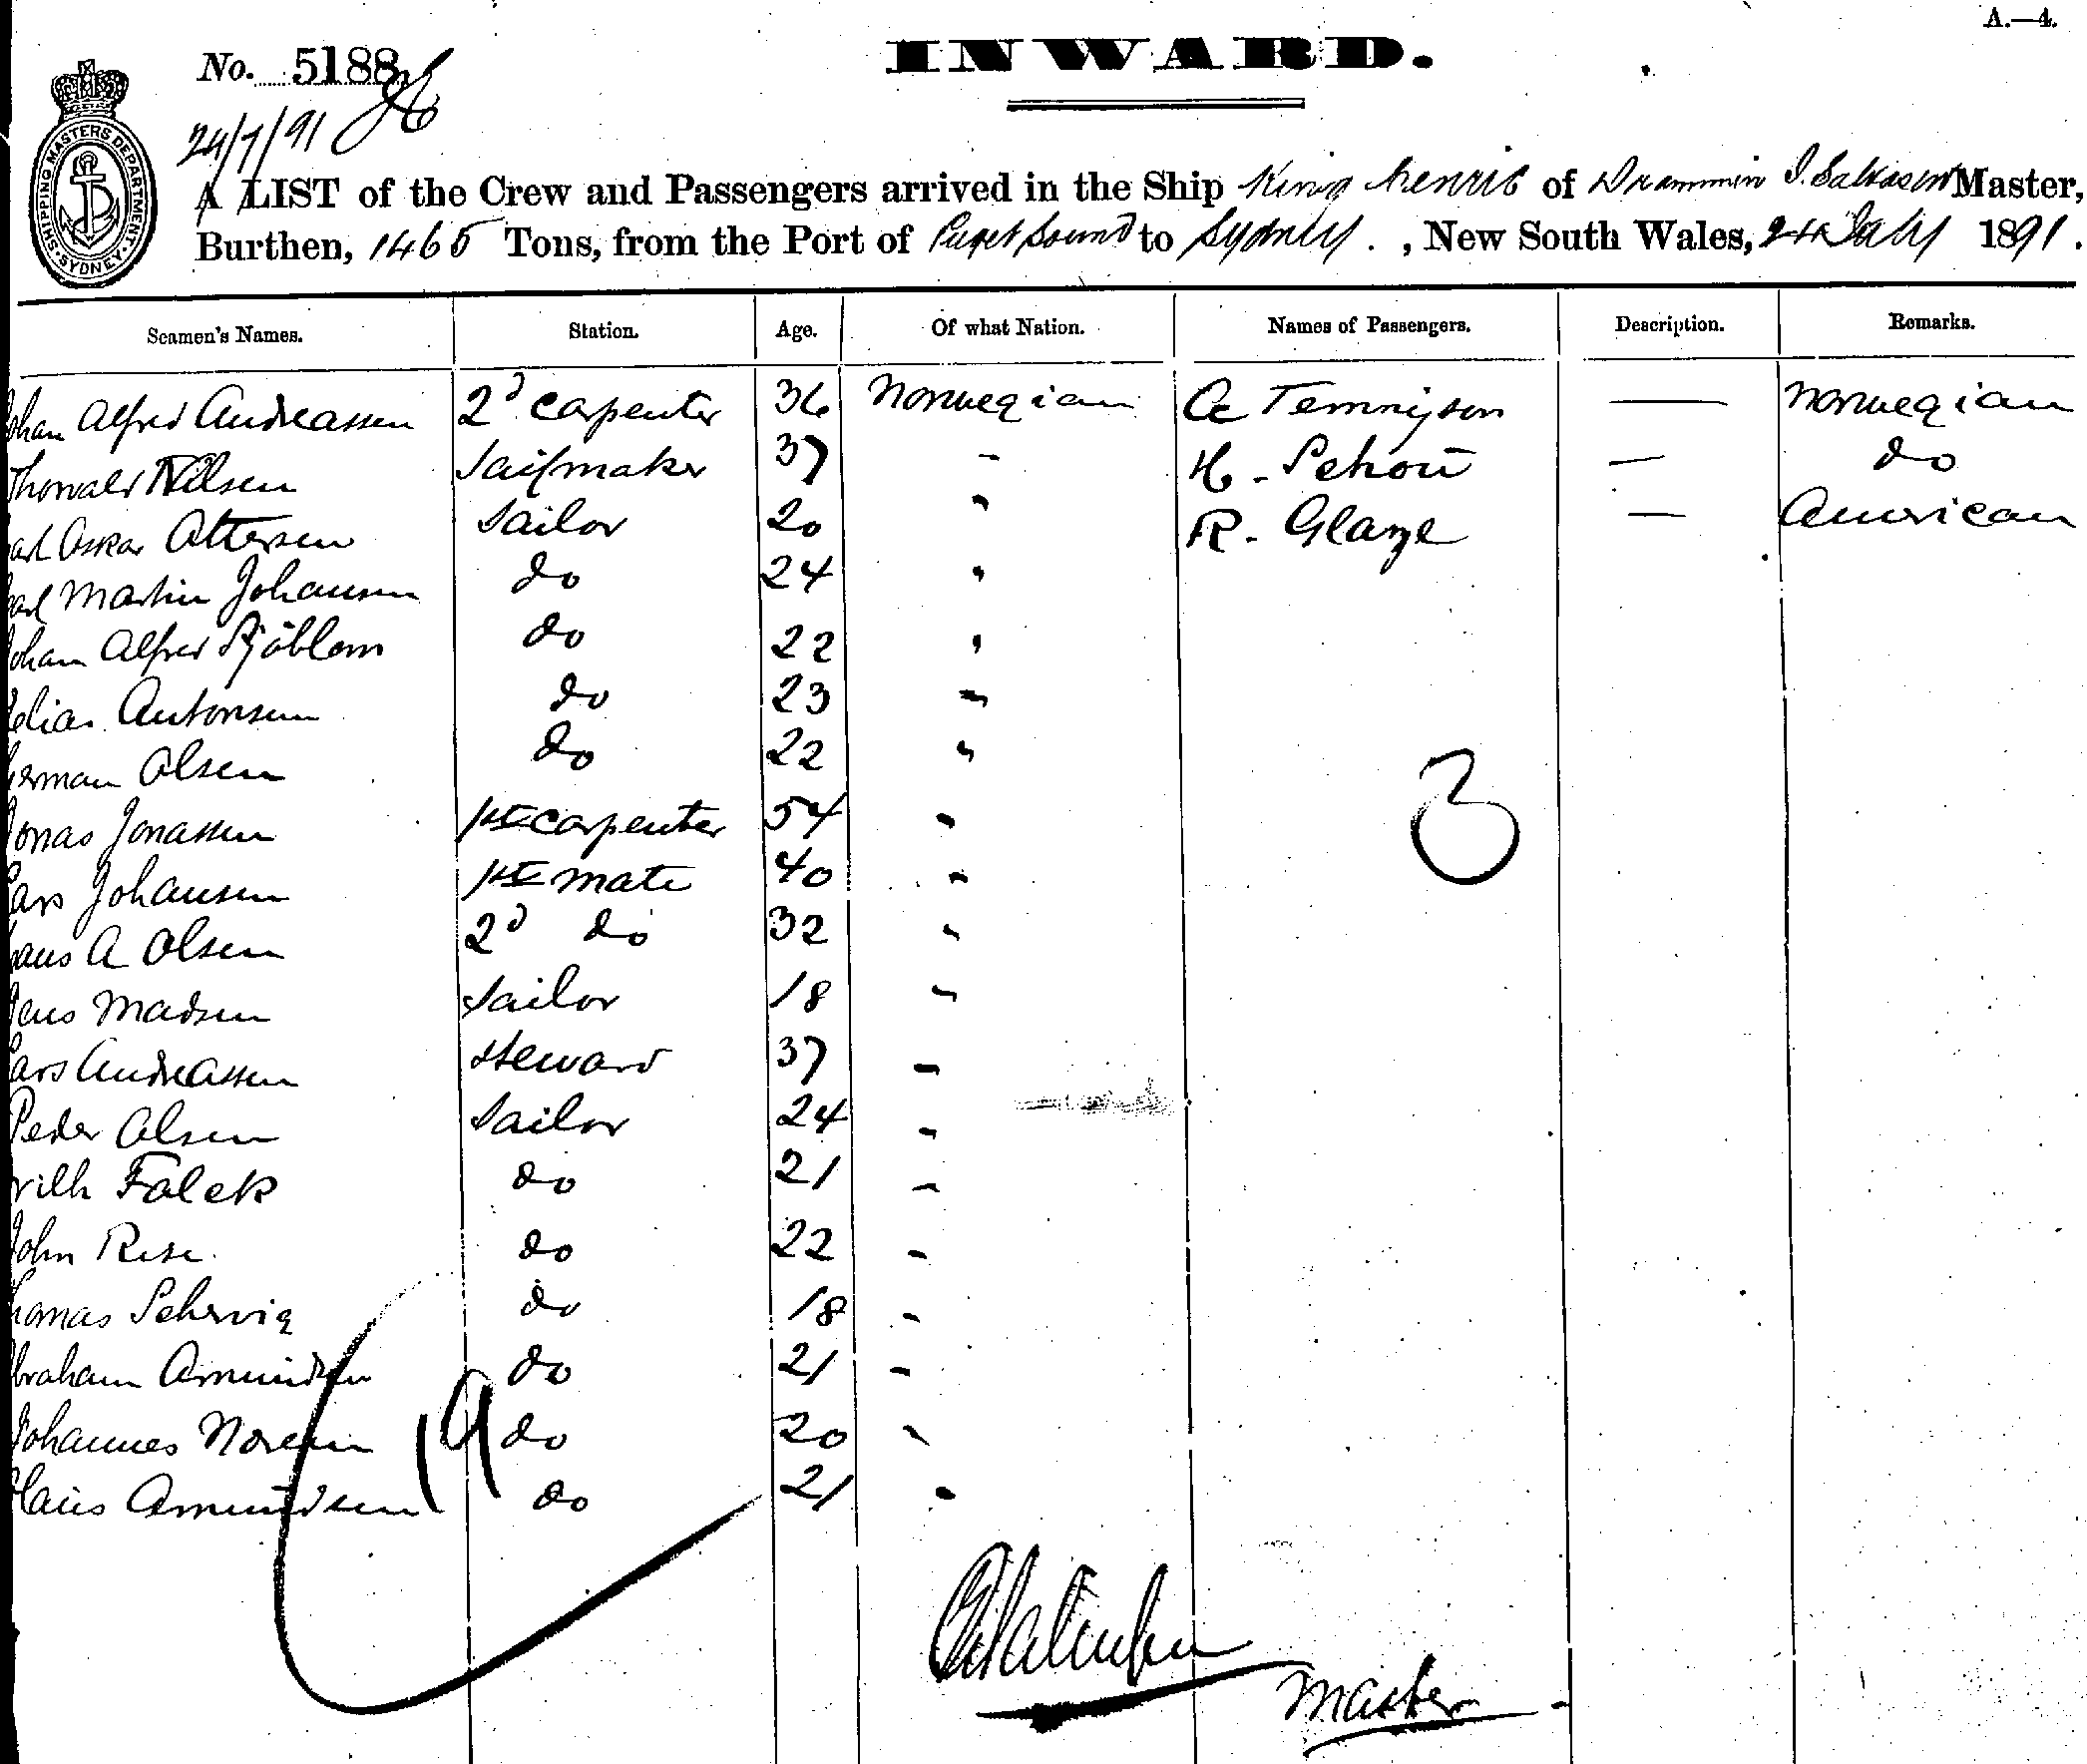 A.—4.
INWARD.
No. 5188
24/7/91
SHIPPING MASTERS DEPARTMENT. SYDNEY.
A LIST of the Crew and Passengers arrived in the Ship King of Master,
Burthen, 1465 Tons, from the Port of Puget Sound to Sydney. , New South Wales, 24 July 1891.
Seamen's Names. Station. Age. Of what Nation. Names of Passengers. Description. Remarks.
ohan Alfred Andreassen 2d carpenter 36 Norwegian A Tennyson — Norwegian
Thorvald Nilsen Sailmaker 37 " H. — do
arl Oskar Ottersen Sailor 20 " R. Glaze — American
arl Martin Johansen do 24 "
ohan Alfred Sjöblom do 22 "
elias Antonsen do 23 "
erman Olsen do 22 "
onas Jonassen 1st carpenter 54 "
ars Johansen 1st mate 40 "
ans A Olsen 2d do 32 "
ens Madsen Sailor 18 "
ars Andreassen Steward 37 "
Peder Olsen Sailor 24 "
vilh Falck do 21 "
John Rese do 22 "
homas Schervig do 18 "
braham Amundsen do 21 "
Johannes do 20 "
Claus Amundsen do 21 "
3
19
Master